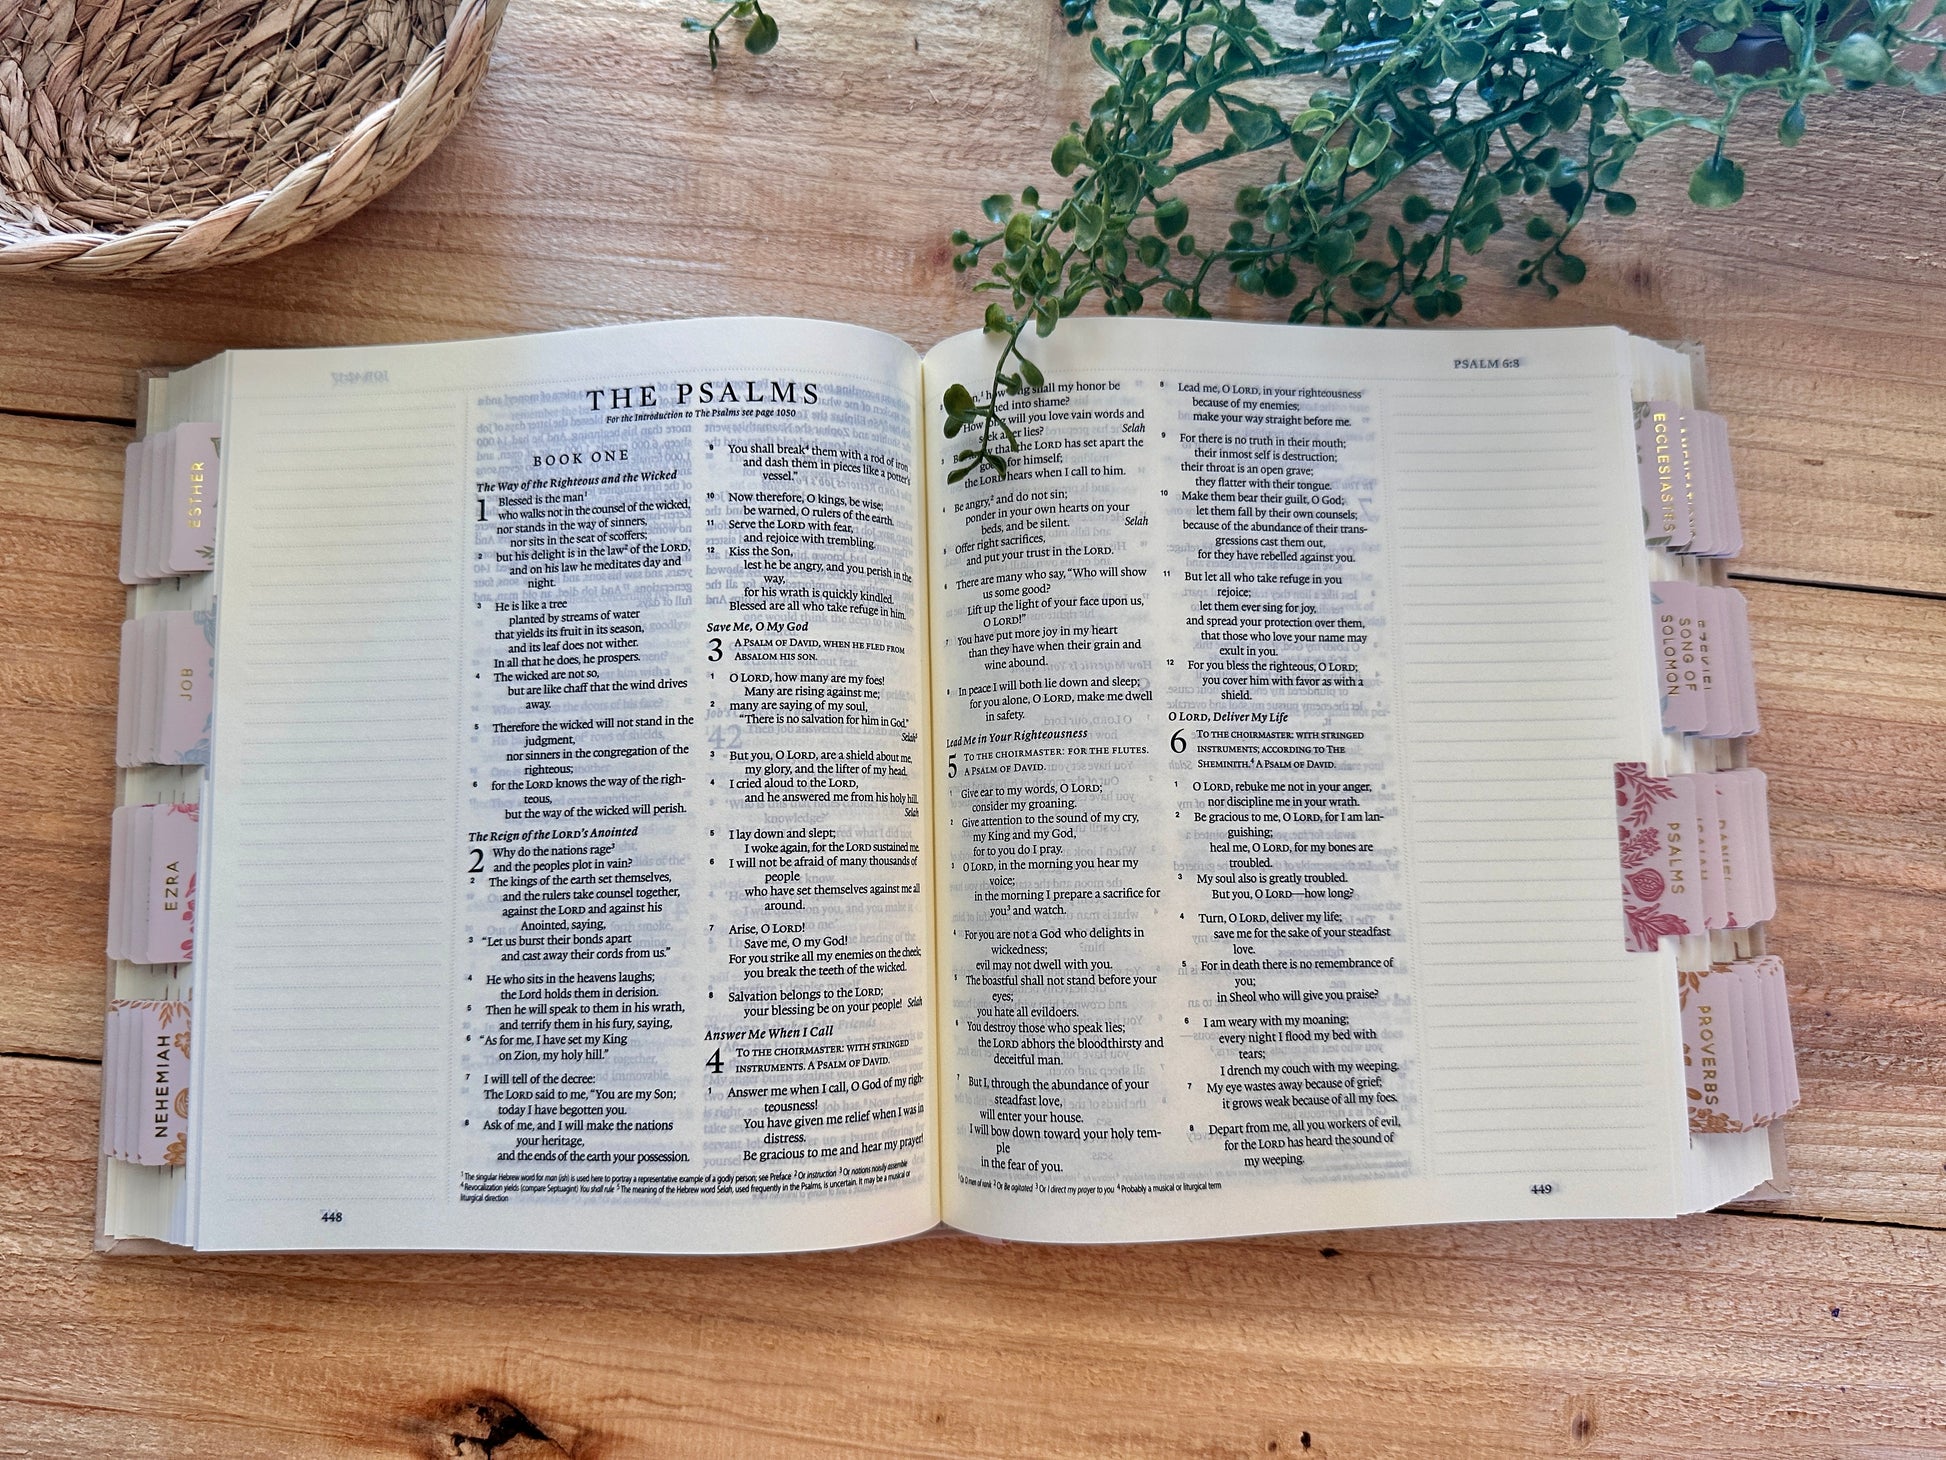 THE PSALMS
For the Introduction to The Psalms see page 1050
BOOK ONE
The Way of the Righteous and the Wicked
1 Blessed is the man¹
who walks not in the counsel of the wicked,
nor stands in the way of sinners,
nor sits in the seat of scoffers;
2 but his delight is in the law² of the LORD,
and on his law he meditates day and
night.
3 He is like a tree
planted by streams of water
that yields its fruit in its season,
and its leaf does not wither.
In all that he does, he prospers.
4 The wicked are not so,
but are like chaff that the wind drives
away.
5 Therefore the wicked will not stand in the
judgment,
nor sinners in the congregation of the
righteous;
6 for the LORD knows the way of the righ-
teous,
but the way of the wicked will perish.
The Reign of the LORD's Anointed
2 Why do the nations rage³
and the peoples plot in vain?
2 The kings of the earth set themselves,
and the rulers take counsel together,
against the LORD and against his
Anointed, saying,
3 “Let us burst their bonds apart
and cast away their cords from us.”
4 He who sits in the heavens laughs;
the Lord holds them in derision.
5 Then he will speak to them in his wrath,
and terrify them in his fury, saying,
6 “As for me, I have set my King
on Zion, my holy hill.”
7 I will tell of the decree:
The LORD said to me, “You are my Son;
today I have begotten you.
8 Ask of me, and I will make the nations
your heritage,
and the ends of the earth your possession.
9 You shall break⁴ them with a rod of iron
and dash them in pieces like a potter's
vessel.”
10 Now therefore, O kings, be wise;
be warned, O rulers of the earth.
11 Serve the LORD with fear,
and rejoice with trembling.
12 Kiss the Son,
lest he be angry, and you perish in the
way,
for his wrath is quickly kindled.
Blessed are all who take refuge in him.
Save Me, O My God
3 A PSALM OF DAVID, WHEN HE FLED FROM
ABSALOM HIS SON.
1 O LORD, how many are my foes!
Many are rising against me;
2 many are saying of my soul,
“There is no salvation for him in God.”
Selah⁵
3 But you, O LORD, are a shield about me,
my glory, and the lifter of my head.
4 I cried aloud to the LORD,
and he answered me from his holy hill.
Selah
5 I lay down and slept;
I woke again, for the LORD sustained me.
6 I will not be afraid of many thousands of
people
who have set themselves against me all
around.
7 Arise, O LORD!
Save me, O my God!
For you strike all my enemies on the cheek;
you break the teeth of the wicked.
8 Salvation belongs to the LORD;
your blessing be on your people! Selah
Answer Me When I Call
4 TO THE CHOIRMASTER: WITH STRINGED
INSTRUMENTS. A PSALM OF DAVID.
1 Answer me when I call, O God of my righ-
teousness!
You have given me relief when I was in
distress.
Be gracious to me and hear my prayer!
¹ The singular Hebrew word for man (ish) is used here to portray a representative example of a godly person; see Preface ² Or instruction ³ Or nations noisily assemble
⁴ Revocalization yields (compare Septuagint) You shall rule ⁵ The meaning of the Hebrew word Selah, used frequently in the Psalms, is uncertain. It may be a musical or
liturgical direction
448
PSALM 6:8
shall my honor be
into shame?
How long will you love vain words and
seek after lies? Selah
3 that the LORD has set apart the
for himself;
the LORD hears when I call to him.
4 Be angry,² and do not sin;
ponder in your own hearts on your
beds, and be silent. Selah
5 Offer right sacrifices,
and put your trust in the LORD.
6 There are many who say, “Who will show
us some good?
Lift up the light of your face upon us,
O LORD!”
7 You have put more joy in my heart
than they have when their grain and
wine abound.
8 In peace I will both lie down and sleep;
for you alone, O LORD, make me dwell
in safety.
Lead Me in Your Righteousness
5 TO THE CHOIRMASTER: FOR THE FLUTES.
A PSALM OF DAVID.
1 Give ear to my words, O LORD;
consider my groaning.
2 Give attention to the sound of my cry,
my King and my God,
for to you do I pray.
3 O LORD, in the morning you hear my
voice;
in the morning I prepare a sacrifice for
you³ and watch.
4 For you are not a God who delights in
wickedness;
evil may not dwell with you.
5 The boastful shall not stand before your
eyes;
you hate all evildoers.
6 You destroy those who speak lies;
the LORD abhors the bloodthirsty and
deceitful man.
7 But I, through the abundance of your
steadfast love,
will enter your house.
I will bow down toward your holy tem-
ple
in the fear of you.
8 Lead me, O LORD, in your righteousness
because of my enemies;
make your way straight before me.
9 For there is no truth in their mouth;
their inmost self is destruction;
their throat is an open grave;
they flatter with their tongue.
10 Make them bear their guilt, O God;
let them fall by their own counsels;
because of the abundance of their trans-
gressions cast them out,
for they have rebelled against you.
11 But let all who take refuge in you
rejoice;
let them ever sing for joy,
and spread your protection over them,
that those who love your name may
exult in you.
12 For you bless the righteous, O LORD;
you cover him with favor as with a
shield.
O LORD, Deliver My Life
6 TO THE CHOIRMASTER: WITH STRINGED
INSTRUMENTS; ACCORDING TO THE
SHEMINITH.⁴ A PSALM OF DAVID.
1 O LORD, rebuke me not in your anger,
nor discipline me in your wrath.
2 Be gracious to me, O LORD, for I am lan-
guishing;
heal me, O LORD, for my bones are
troubled.
3 My soul also is greatly troubled.
But you, O LORD—how long?
4 Turn, O LORD, deliver my life;
save me for the sake of your steadfast
love.
5 For in death there is no remembrance of
you;
in Sheol who will give you praise?
6 I am weary with my moaning;
every night I flood my bed with
tears;
I drench my couch with my weeping.
7 My eye wastes away because of grief;
it grows weak because of all my foes.
8 Depart from me, all you workers of evil,
for the LORD has heard the sound of
my weeping.
¹ Or O men of rank ² Or Be agitated ³ Or I direct my prayer to you ⁴ Probably a musical or liturgical term
449
ESTHER
JOB
EZRA
NEHEMIAH
ECCLESIASTES
SONG OF
SOLOMON
PSALMS
PROVERBS